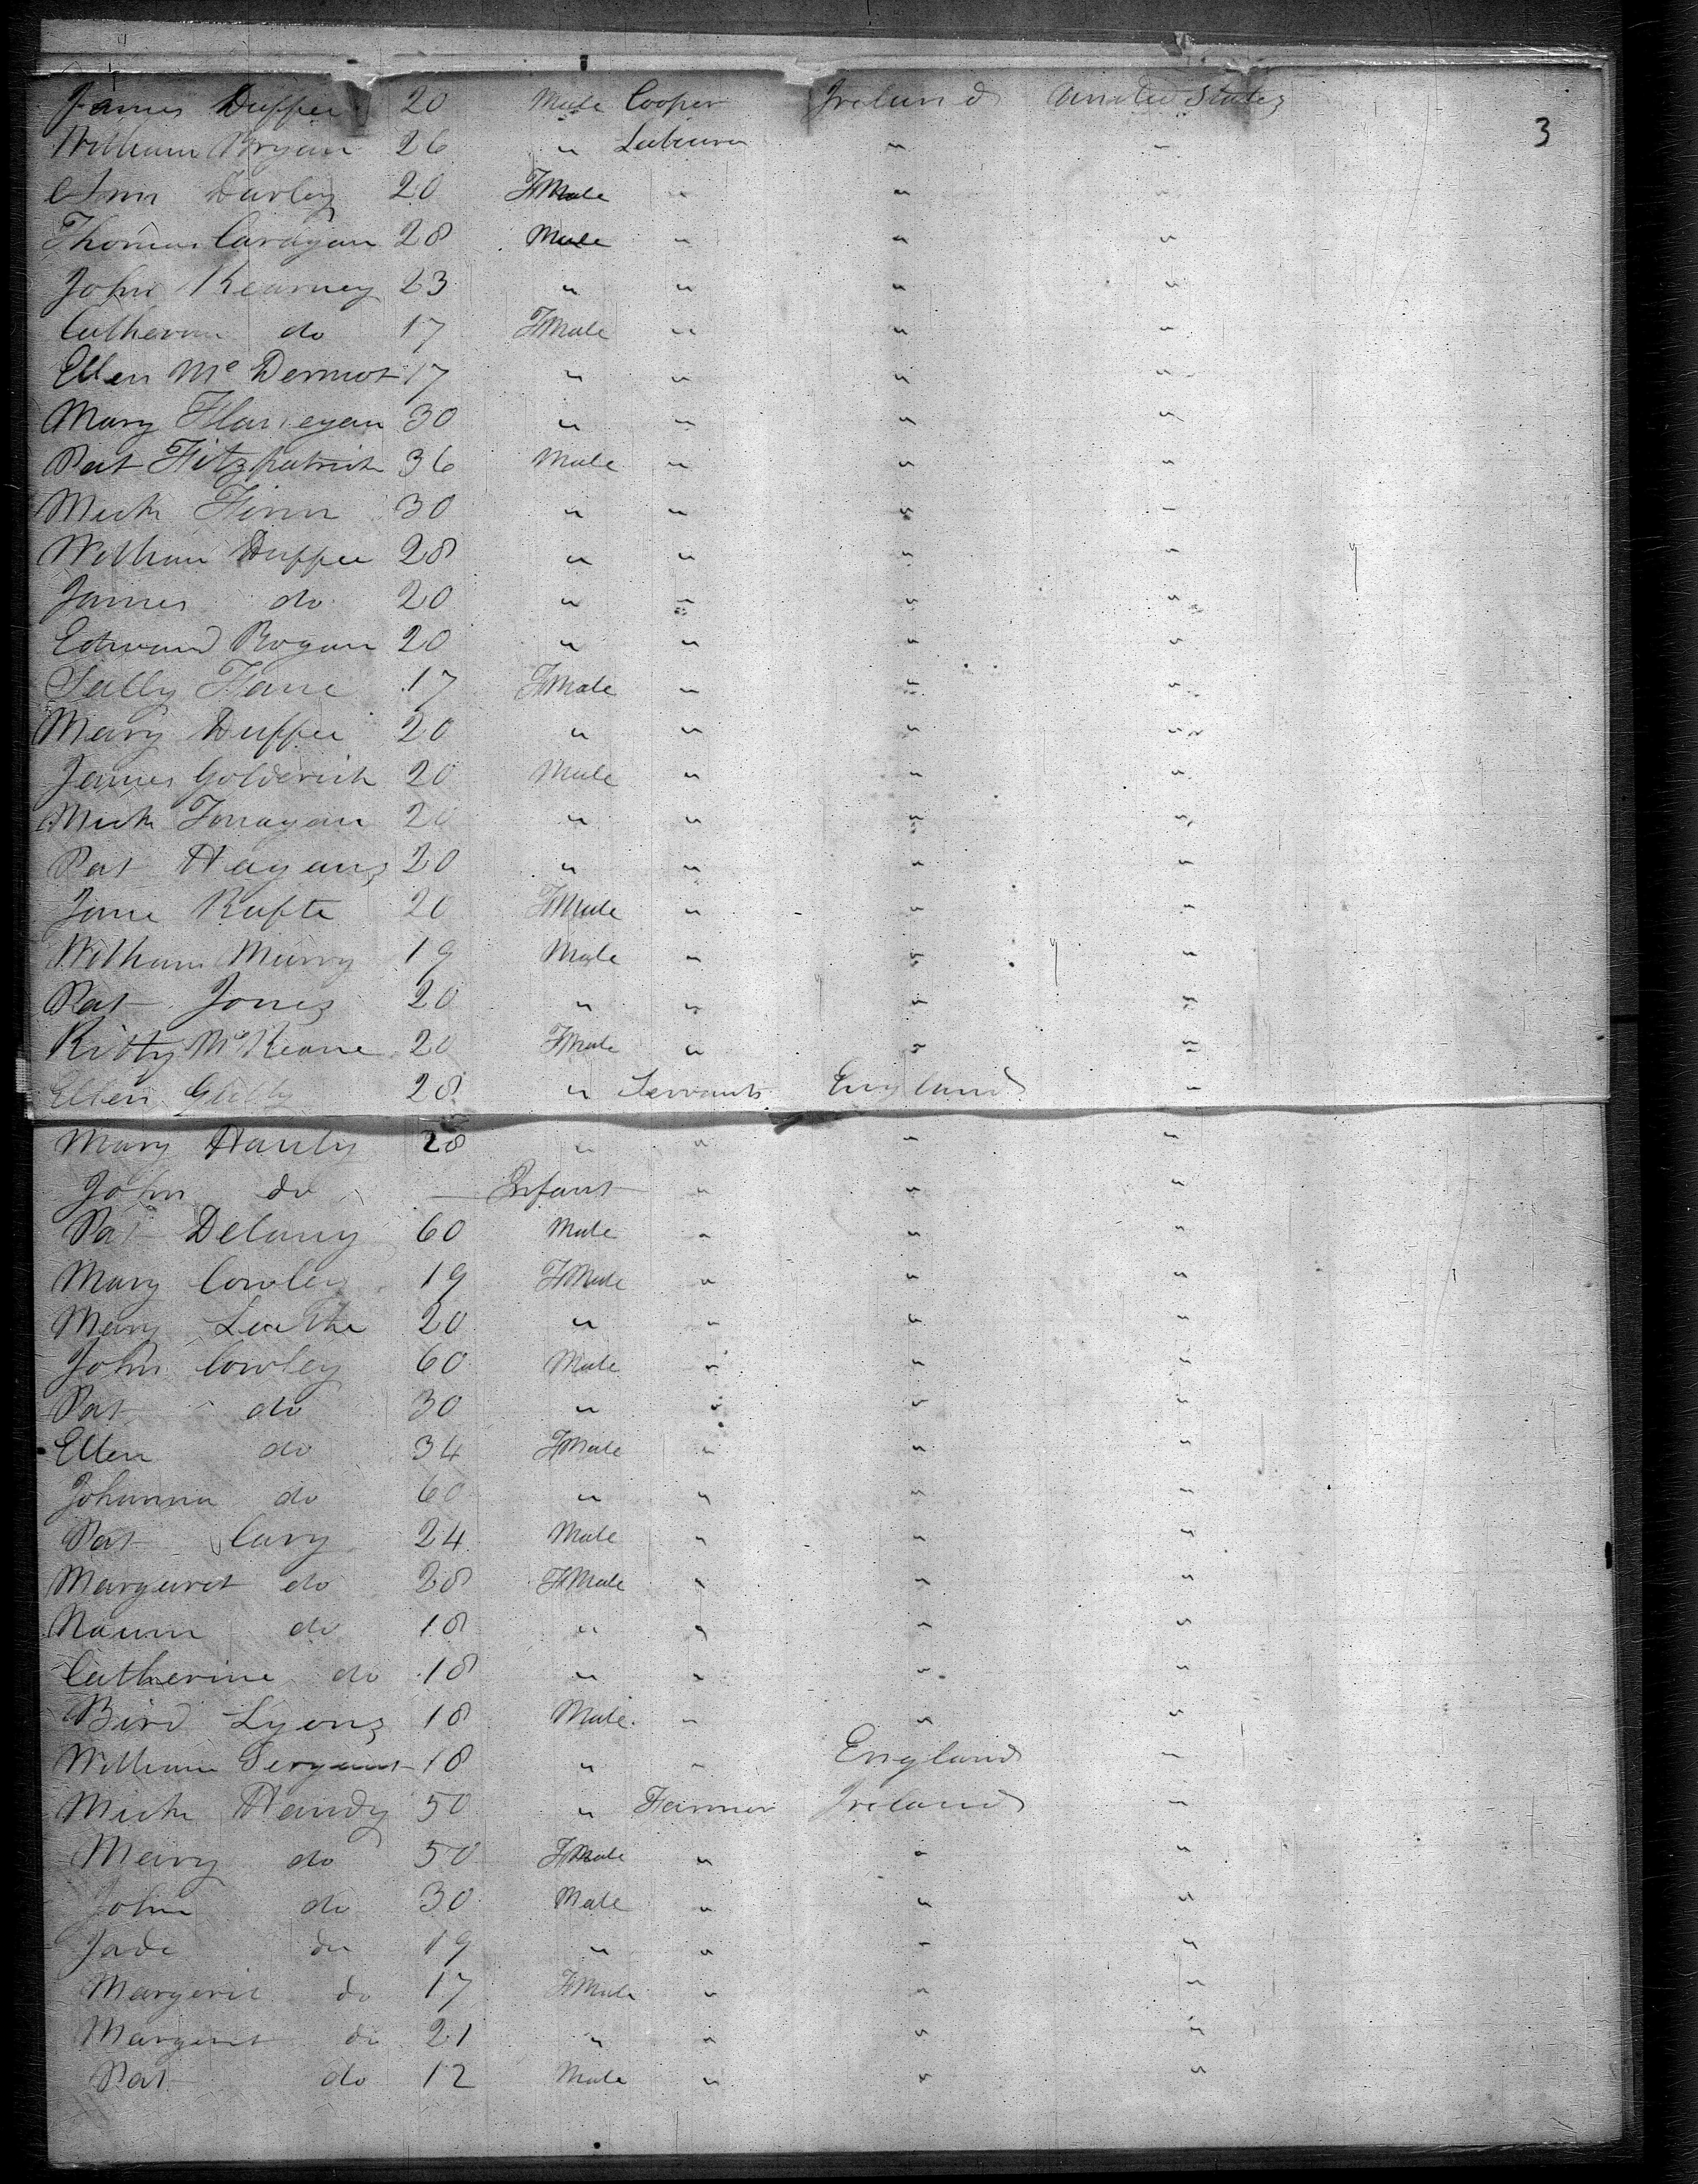 James Duffee 20 Male Cooper Ireland United States
3
William Bryan 26 " Labourer " "
Ann Darley 20 FMale " " "
Thomas Cardgan 28 Male " " "
John Kearney 23 " " " "
Catherine do 17 FMale " " "
Ellen Mc Dermot 17 " " " "
Mary Flanegan 30 " " " "
Pat Fitzpatrick 36 Male " " "
Mich Finn 30 " " " "
William Duffee 28 " " " "
James do 20 " " " "
Edward Bogan 20 " " " "
Sally Fane 17 FMale " " "
Mary Duffee 20 " " " "
James Golderich 20 Male " " "
Mich Finagan 20 " " " "
Pat Hagans 20 " " " "
Jane Rufte 20 FMale " " "
William Murry 19 Male " " "
Pat Jones 20 " " " "
Kitty McKeane 20 FMale " " "
Ellen 28 " Servants England "
Mary Hanly 28 " " " "
John do — Infant — " " "
Pat Delany 60 Male " " "
Mary Cowley 19 FMale " " "
Mary Leathe 20 " " " "
John Cowley 60 Male " " "
Pat do 30 " " " "
Ellen do 34 FMale " " "
Johanna do 60 " " " "
Pat Cary 24 Male " " "
Margaret do 28 FMale " " "
Naum do 18 " " " "
Catherine do 18 " " " "
Bird Lyons 18 Male " " "
William Sergant 18 " " England "
Mich Handy 50 " Farmer Ireland "
Mary do 50 FMale " " "
John do 30 Male " " "
Jade do 19 " " " "
Margerit do 17 FMale " " "
Margerit do 21 " " " "
Pat do 12 Male " " "